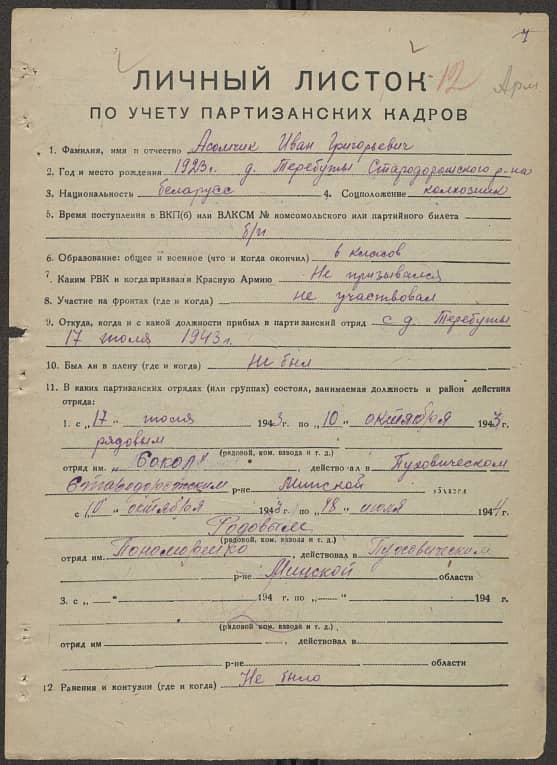 7
ЛИЧНЫЙ ЛИСТОК 12
ПО УЧЕТУ ПАРТИЗАНСКИХ КАДРОВ
1. Фамилия, имя и отчество Асомчик Иван Григорьевич
2. Год и место рождения 1923г. д. Теребуты Стародорожского р-на
3. Национальность беларусс 4. Соцположение колхозник
5. Время поступления в ВКП(б) или ВЛКСМ № комсомольского или партийного билета
б/п
6. Образование: общее и военное (что и когда окончил) 6 класов
7. Каким РВК и когда призван в Красную Армию Не призывался
8. Участие на фронтах (где и когда) не участвовал
9. Откуда, когда и с какой должности прибыл в партизанский отряд с д. Теребуты
17 июля 1943г.
10. Был ли в плену (где и когда) Не был
11. В каких партизанских отрядах (или группах) состоял, занимаемая должность и район действия
отряда:
1. с „17" июля 1943 г. по „10" октября 1943 г.
рядовым
(рядовой, ком. взвода и т. д.)
отряд им. „Сокол" , действовал в Пуховическом
Стародорожским р-не Минской област
с „10" октября 1943 г. по „18" июля 1944 г.
Родовым
(рядовой, ком. взвода и т. д.)
отряд им Пономоренко , действовал в Пуховическим
р-не Минской области
3. с „ " 194 г. по „ " 194 г.
(рядовой ком. взвода и т. д.)
отряд им , действовал в
р-не области
12 Ранения и контузии (где и когда) Не было